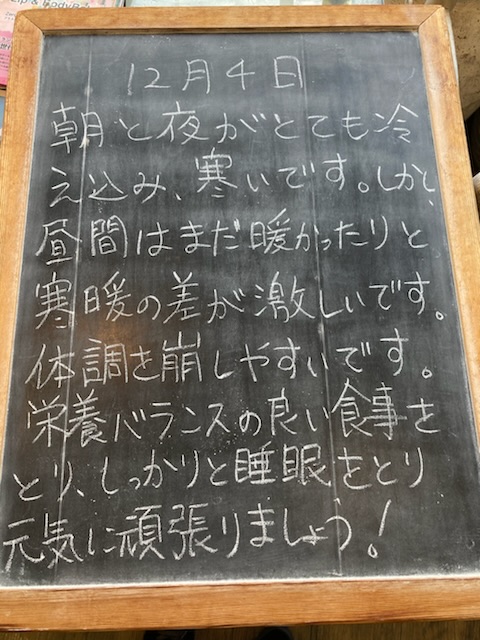 12月4日
朝と夜がとても冷
え込み、寒いです。しかし、
昼間はまだ暖かったりと
寒暖の差が激しいです。
体調を崩しやすいです。
栄養バランスの良い食事を
とり、しっかりと睡眠をとり
元気に頑張りましょう!